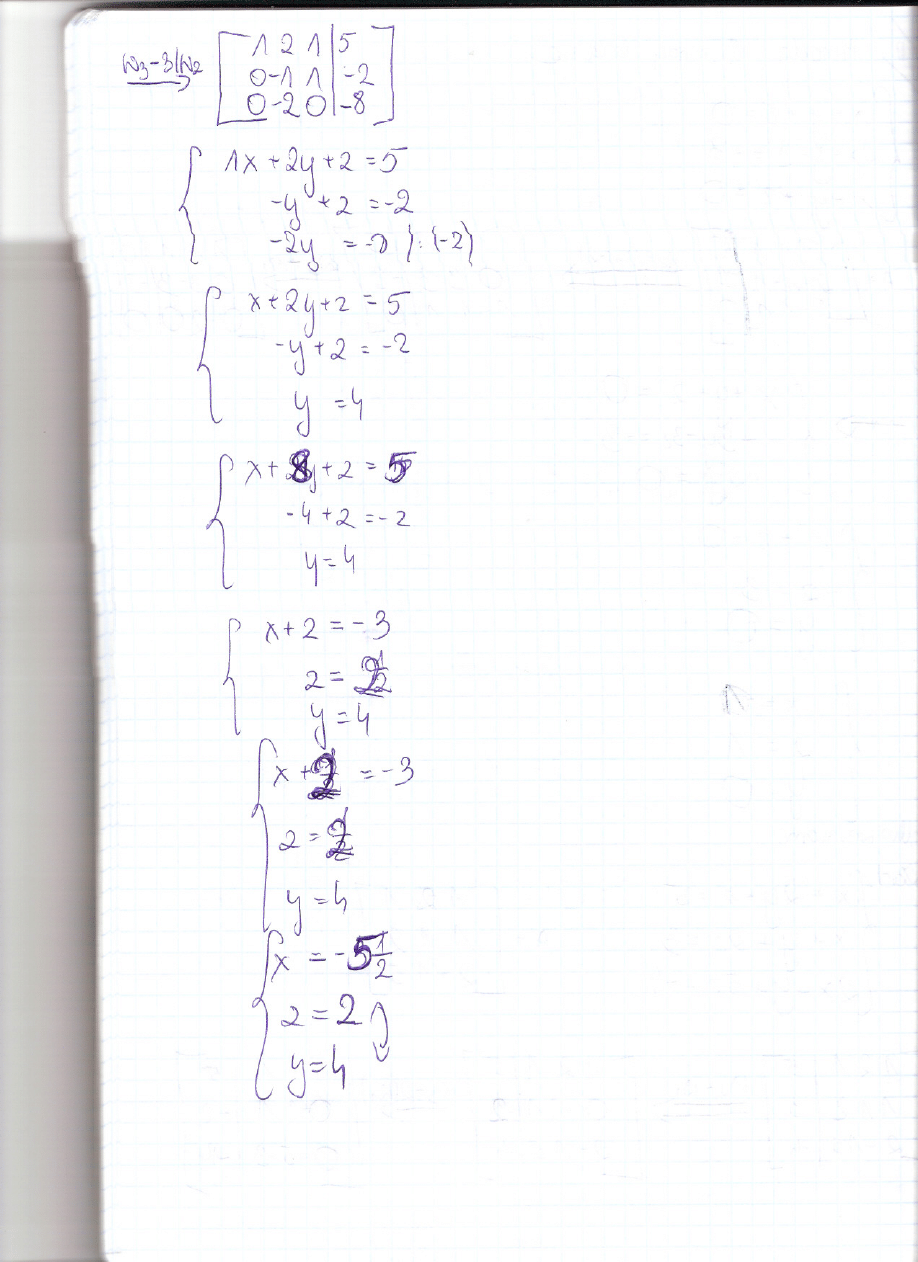 w₃-3|w₂ [ 1 2 1 | 5
0 -1 1 | -2
0 -2 0 | -8 ]
1x + 2y + z = 5
-y + z = -2
-2y = -8 /:(-2)
x + 2y + z = 5
-y + z = -2
y = 4
x + 8 + z = 5
-4 + z = -2
y = 4
x + z = -3
z =
y = 4
x + 2 = -3
z =
y = 4
x = -5 1/2
z = 2
y = 4